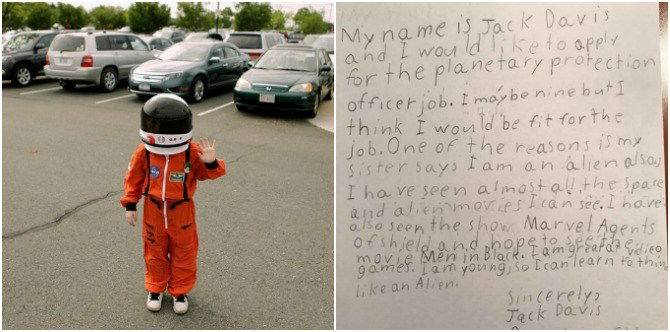 My name is Jack Davis
and I would like to apply
for the planetary protection
officer job. I may be nine but I
think I would be fit for the
job. One of the reasons is my
sister says I am an alien also,
I have seen almost all the space
and alien movies I can see. I have
also seen the show Marvel Agents
of shield and hope to see the
movie Men in Black. I am great at video
games. I am young, so I can learn to think
like an Alien.
Sincerely,
Jack Davis